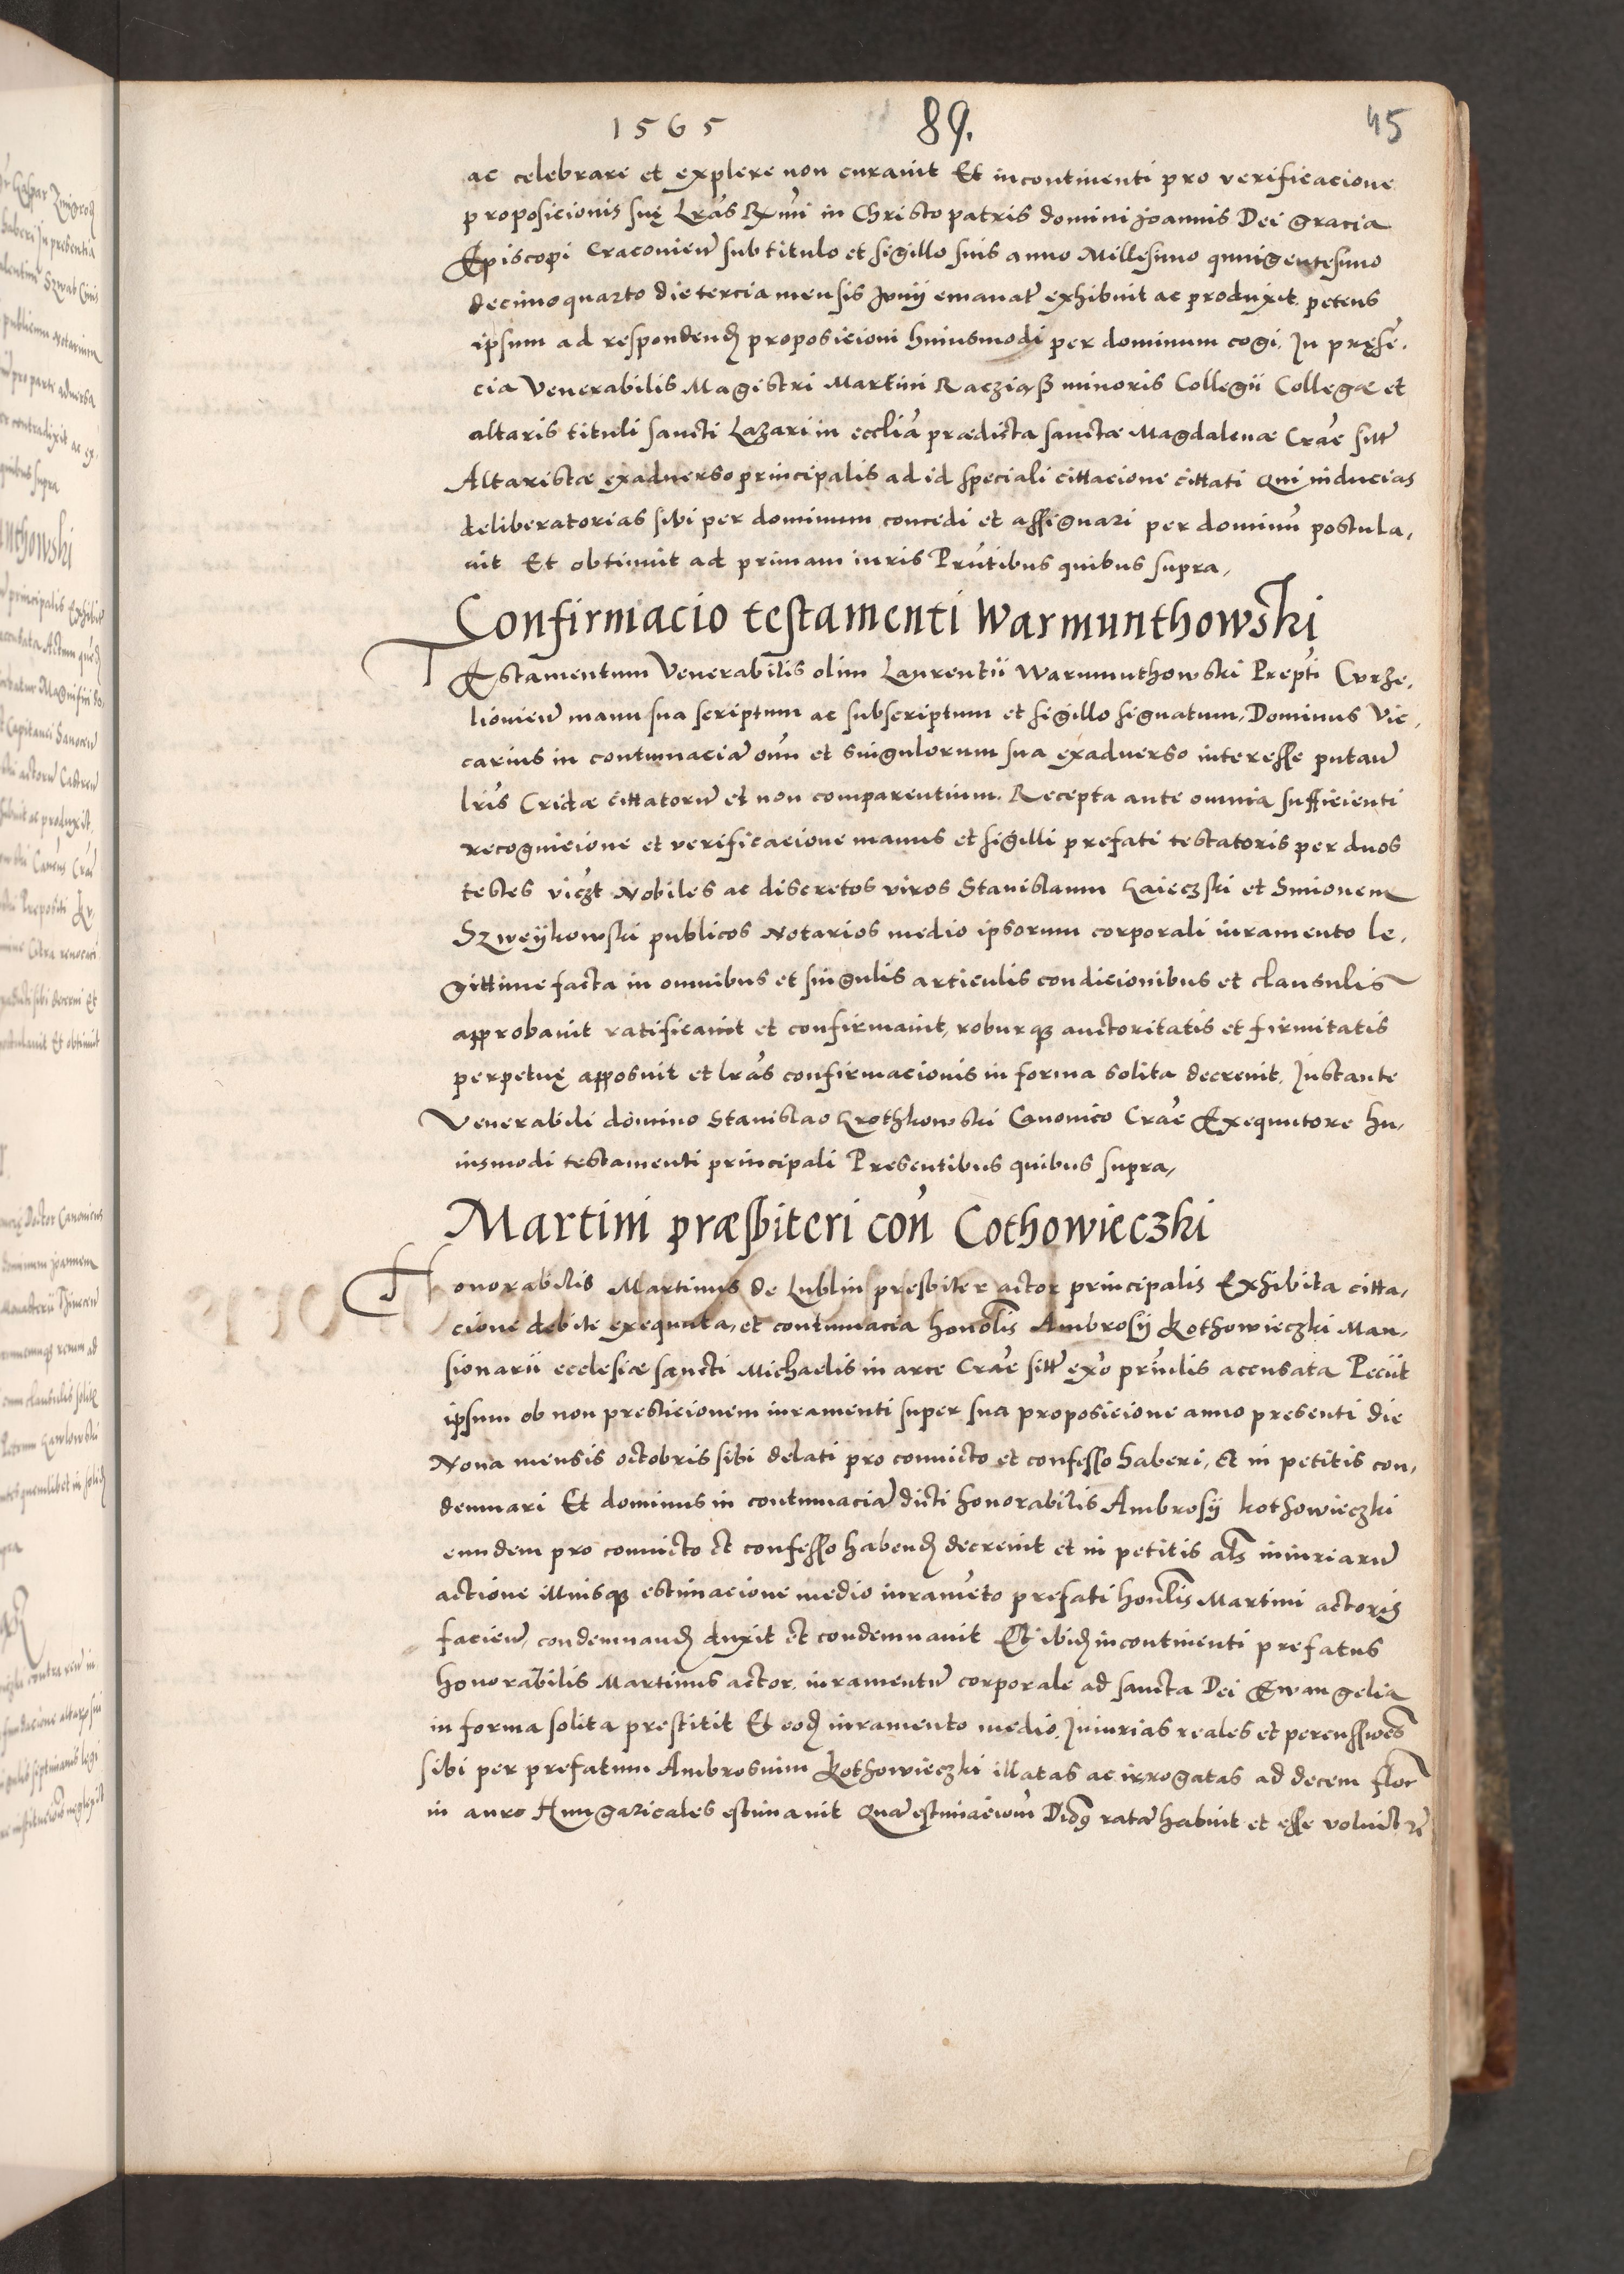 1565 89. 45
ac celebrare et explere non curauit Et incontinenti pro verificacione
proposicionis suę Lrãs Rxmi in Christo patris domini Joannis Dei gracia
Episcopi Cracouien̄ sub titulo et sigillo suis anno Millesimo quingentesimo
decimoquarto die tercia mensis Junij emanat̃ exhibuit ac produxit. petens
ipsum ad respondend̄ proposicioni huiusmodi per dominum cogi. In pręsẽ,
cia Venerabilis Magistri Martini Racziąsz minoris Collegii Collegæ et
altaris tituli sancti Lazari in ecclĩa prædicta sanctæ Magdalenæ Crac̃ sitt̃
Altaristæ exaduerso principalis ad id speciali cittacione cittati Qui inducias
deliberatorias sibi per dominum concedi et assignari per dominũ postula,
uit Et obtinuit ad primam iuris Prñtibus quibus supra,
Confirmacio testamenti Warmunthowski
TEstamentum Venerabilis olim Laurentii Warmunthowski Prepti Curze,
liouien̄ manu sua scriptum ac subscriptum et sigillo signatum, Dominus Vic,
carius in contumaciã oim̃ et singulorum sua exaduerso interesse putan̄
lrĩs Cridæ cittatorũ et non comparentium. Recepta ante omnia sufficienti
recognicione et verificacione manus et sigilli prefati testatoris per duos
testes viczt Nobiles ac discretos viros Stanislaum Zaieczski et Simonem
Szweykowski publicos Notarios medio ipsorum corporali iuramento le,
gittime facta in omnibus et singulis articulis condicionibus et clausulis
approbauit ratificauit et confirmauit, roburqz auctoritatis et firmitatis
perpetuę apposuit et lrãs confirmacionis in forma solita decreuit. Instante
Venerabili domino Stanislao Krothkowski Canonico Crac̃ Exequutore hu,
iusmodi testamenti principali Presentibus quibus supra,
Martini præsbiteri coñ Cothowieczki
Honorabilis Martinus de Lublin presbiter actor principalis Exhibita citta,
cione debite exequuta, et contumacia honolis Ambrosij Kothowieczki Man,
sionarii ecclesiæ sancti Michaelis in arce Crac̃ sitt̃ exõ prñlis accusata Peciit
ipsum ob non presticionem iuramenti super sua proposicione anno presenti die
Nona mensis octobris sibi delati pro conuicto et confesso haberi, et in petitis con,
demnari Et dominus in contumaciã dicti honorabilis Ambrosij kothowieczki
eundem pro conuicto et confesso habend̄ decreuit et in petitis als iniuriarũ
actione illiusqz estimacione medio iuramẽto prefati honlis Martini actoris
facien̄, condemnand̄ duxit et condemnauit Et ibid̄ incontinenti prefatus
honorabilis Martinus actor. iuramentũ corporale ad sancta Dei Ewangelia
in forma solita prestitit Et eod̄ iuramento medio. Iniurias reales et percussiões
sibi per prefatum Ambrosium Kothowieczki illatas ac irrogatas ad decem flor̃
in auro Hungaricales estimauit Quã estimacioñ Dñs ratã habuit et esse voluit